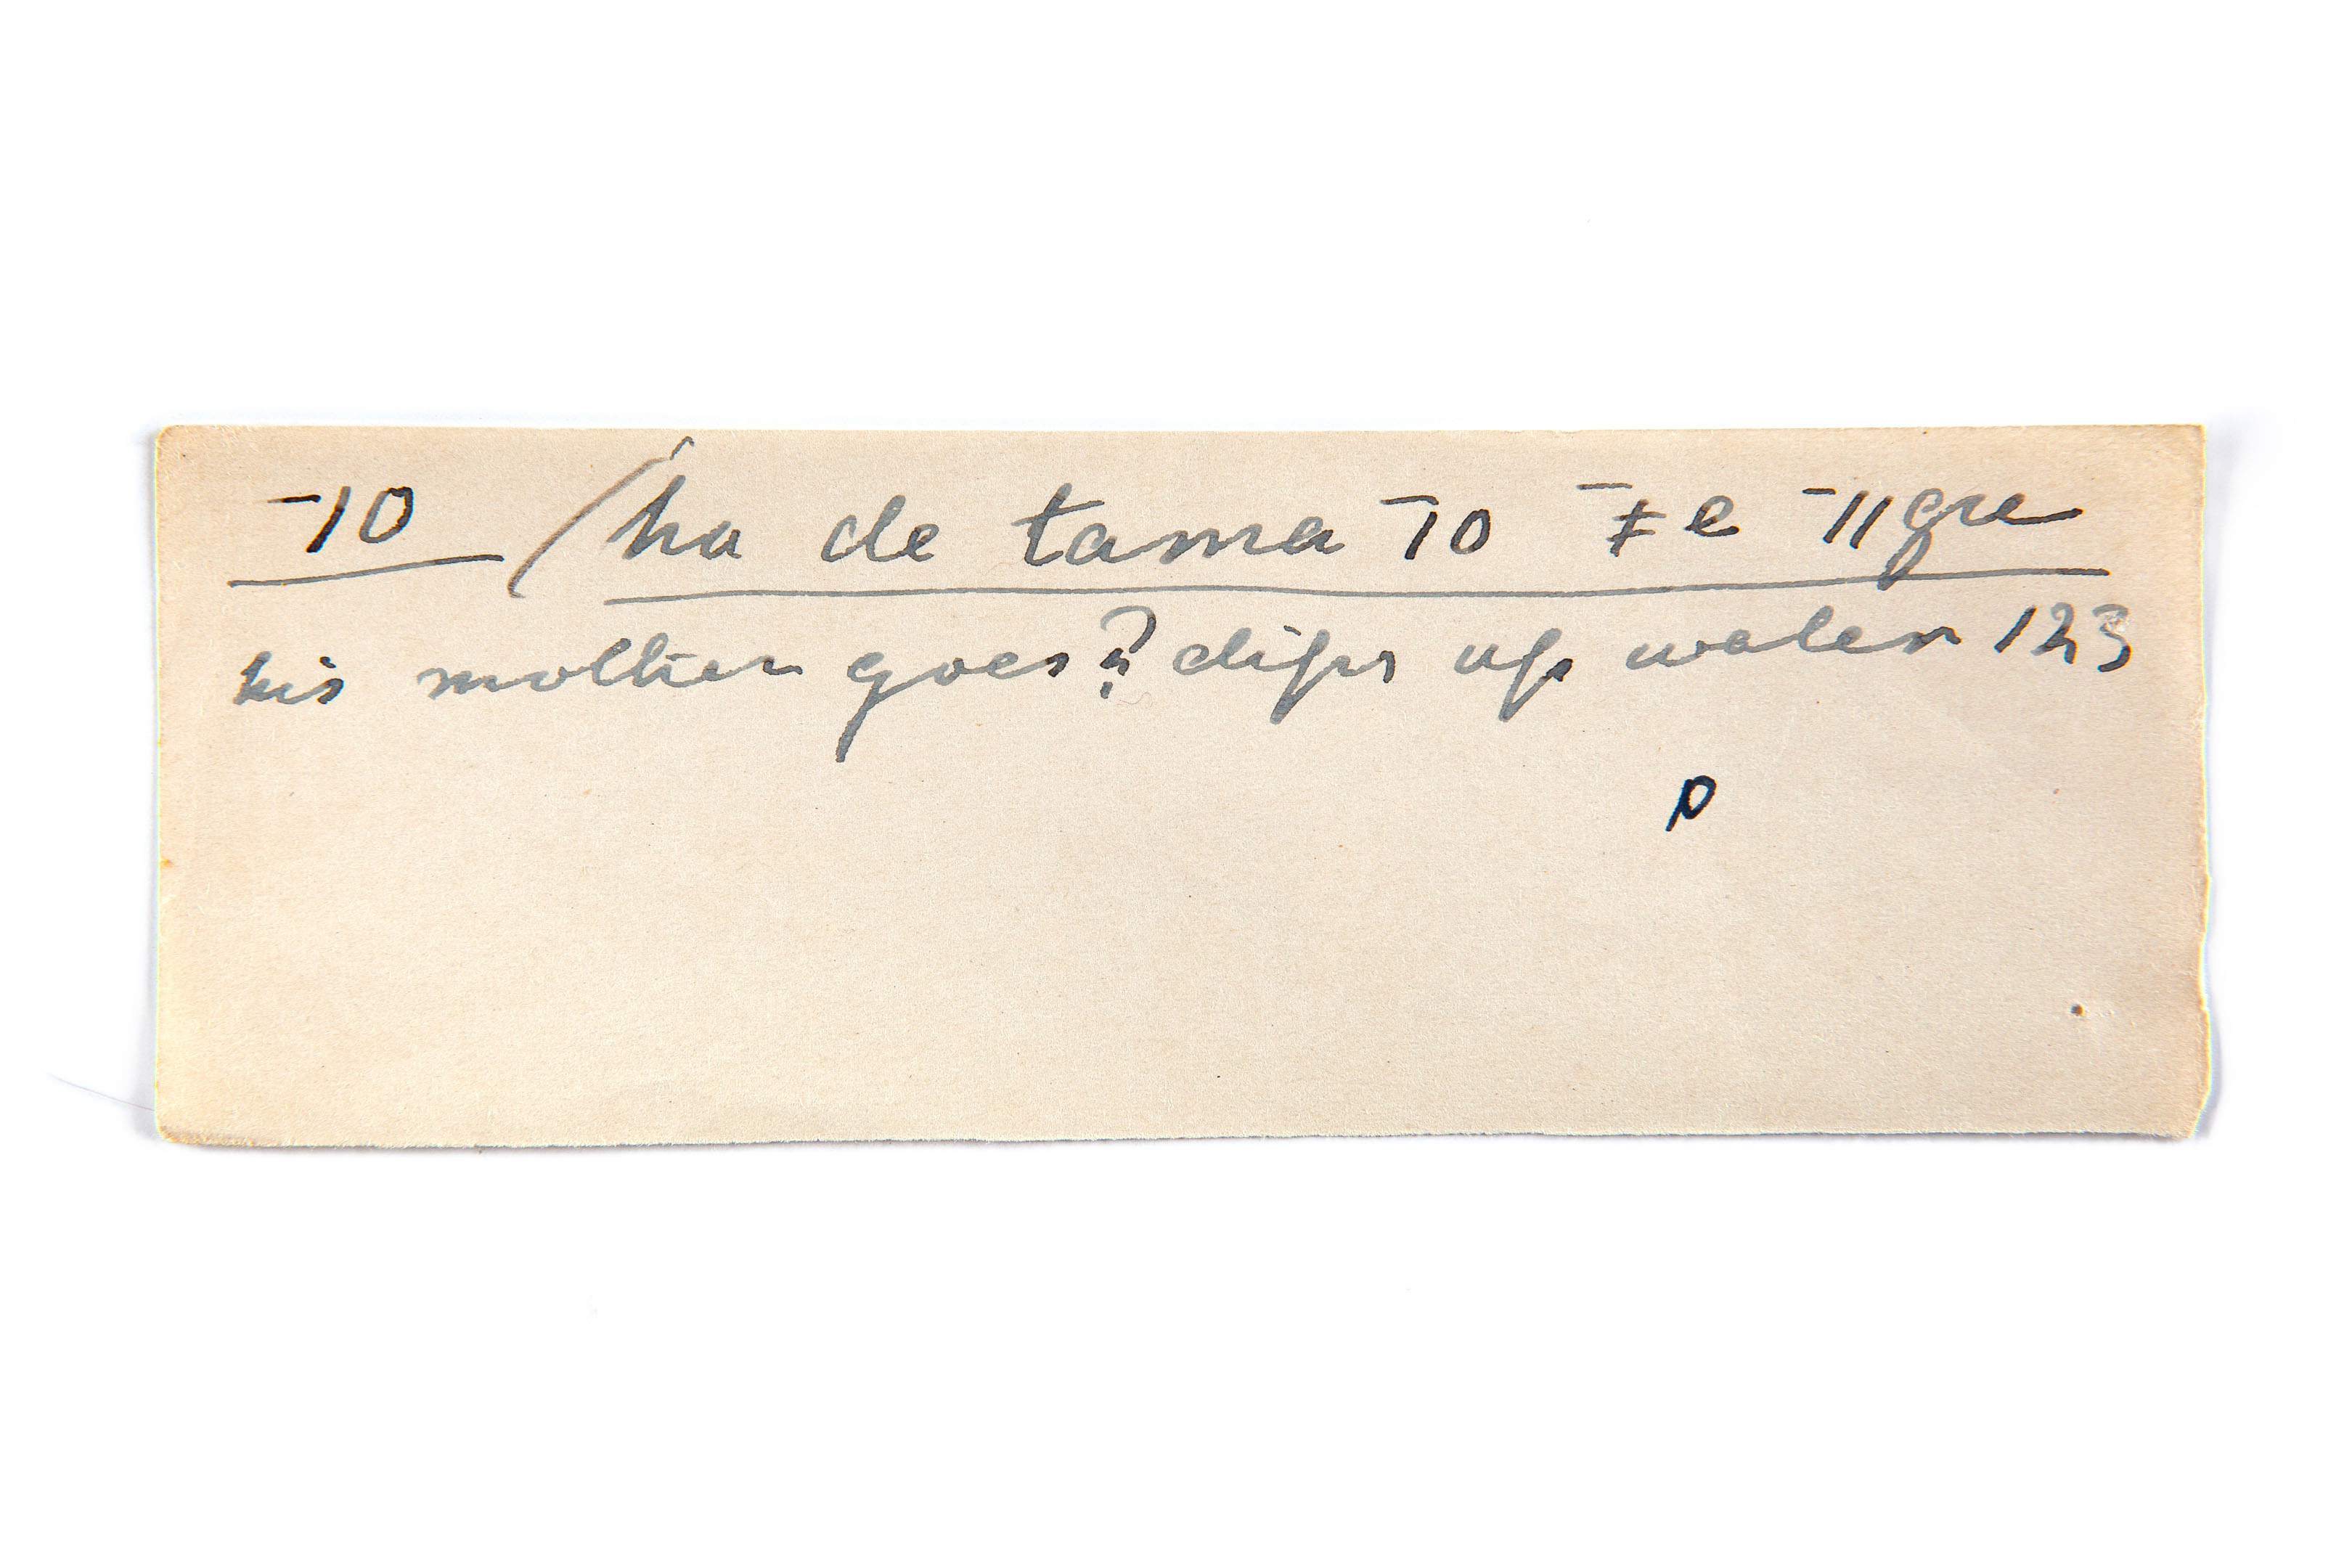 ‾ǀ0 (ha de tama ‾ǀ0 ‾ǂe ‾ǁgre
his mother goes? dips up water 123
p